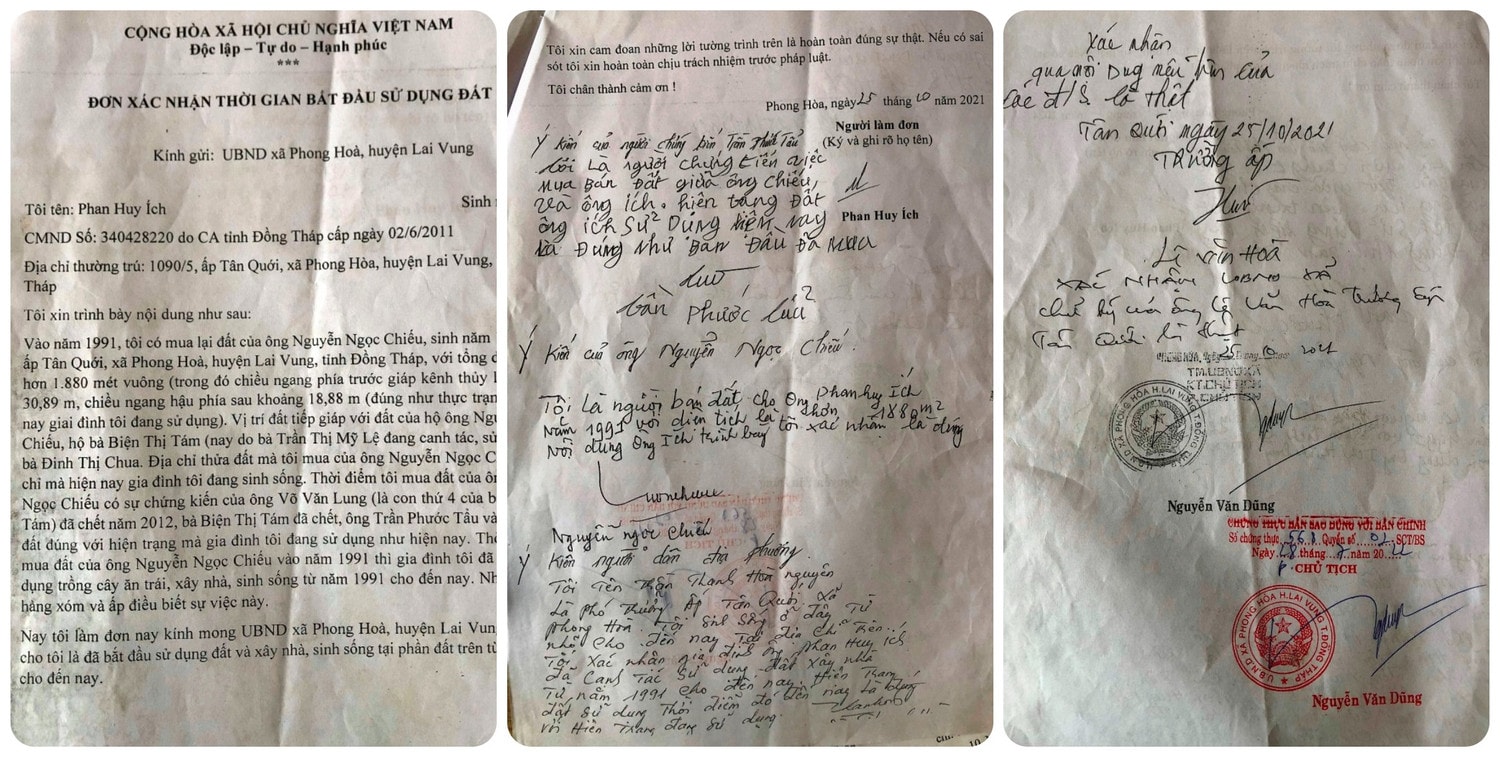 CỘNG HÒA XÃ HỘI CHỦ NGHĨA VIỆT NAM
Độc lập – Tự do – Hạnh phúc
***
ĐƠN XÁC NHẬN THỜI GIAN BẮT ĐẦU SỬ DỤNG ĐẤT
Kính gửi: UBND xã Phong Hoà, huyện Lai Vung
Tôi tên: Phan Huy Ích Sinh
CMND Số: 340428220 do CA tỉnh Đồng Tháp cấp ngày 02/6/2011
Địa chỉ thường trú: 1090/5, ấp Tân Quới, xã Phong Hòa, huyện Lai Vung,
Tháp
Tôi xin trình bày nội dung như sau:
Vào năm 1991, tôi có mua lại đất của ông Nguyễn Ngọc Chiếu, sinh năm
ấp Tân Quới, xã Phong Hoà, huyện Lai Vung, tỉnh Đồng Tháp, với tổng
hơn 1.880 mét vuông (trong đó chiều ngang phía trước giáp kênh thủy
30,89 m, chiều ngang hậu phía sau khoảng 18,88 m (đúng như thực
nay giai đình tôi đang sử dụng). Vị trí đất tiếp giáp với đất của hộ ông
Chiếu, hộ bà Biện Thị Tám (nay do bà Trần Thị Mỹ Lệ đang canh tác,
bà Đinh Thị Chua. Địa chỉ thửa đất mà tôi mua của ông Nguyễn Ngọc
chỉ mà hiện nay gia đình tôi đang sinh sống. Thời điểm tôi mua đất của
Ngọc Chiếu có sự chứng kiến của ông Võ Văn Lung (là con thứ 4 của
Tám) đã chết năm 2012, bà Biện Thị Tám đã chết, ông Trần Phước Tẩu và
đất đúng với hiện trạng mà gia đình tôi đang sử dụng như hiện nay.
mua đất của ông Nguyễn Ngọc Chiếu vào năm 1991 thì gia đình tôi đã
dụng trồng cây ăn trái, xây nhà, sinh sống từ năm 1991 cho đến nay.
hàng xóm và ấp điều biết sự việc này.
Nay tôi làm đơn nay kính mong UBND xã Phong Hoà, huyện Lai
cho tôi là đã bắt đầu sử dụng đất và xây nhà, sinh sống tại phần đất trên từ
cho đến nay.
Tôi xin cam đoan những lời tường trình trên là hoàn toàn đúng sự thật. Nếu có sai
sót tôi xin hoàn toàn chịu trách nhiệm trước pháp luật.
Tôi chân thành cảm ơn !
Phong Hòa, ngày 25 tháng 10 năm 2021
Người làm đơn
(Ký và ghi rõ họ tên)
Phan Huy Ích
Ý kiến của người chứng kiến Trần Phước Tẩu
tôi Là người chứng kiến việc
mua bán Đất giữa ông Chiếu,
và ông ích. hiện trạng Đất
ông ích Sử Dụng hiện nay
là Đúng như Ban Đầu Đã Mua
trần Phước
Ý Kiến của ông Nguyễn Ngọc Chiếu.
Tôi Là người bán đất cho ông phan huy Ích
Năm 1991 với diện tích là hơn m2
Nội dung ông Ích trình bày tôi xác nhận là đúng
Nguyễn ngọc Chiếu
Ý Kiến người dân địa phương
Tôi Tên Thanh Hoà nguyên
Là Phó Trưởng Ấp Tân Quới Xã
phong Hòa. Tôi Sinh Sống ở đây Từ
nhỏ Cho đến nay Tại địa Chỉ Trên.
Tôi Xác nhận gia đình ông phan Huy ích
đã Canh Tác Sử dụng đất xây nhà
Từ năm 1991 Cho đến nay. Hiện Trạng
đất Sử dụng Thời điểm đó đến nay Là Đúng
với Hiện Trạng đang Sử dụng.
Xác nhận
qua nội Dung nêu trên của
các đ/c là thật
Tân Quới ngày 25/10/2021
Trưởng ấp
Lê Văn Hoà
XÁC NHẬN UBND XÃ
chữ ký của ông Lê Văn Hoà Trưởng ấp
Tân Quới là thật
25 10 2021
TM.UBND XÃ
KT.CHỦ TỊCH
P.CHỦ TỊCH
U.B.N.D XÃ PHONG HÒA H.LAI VUNG T.ĐỒNG THÁP
Nguyễn Văn Dũng
CHỨNG THỰC BẢN SAO ĐÚNG VỚI BẢN CHÍNH
Số chứng thực Quyển số 02 SCT/BS
Ngày tháng năm 20
CHỦ TỊCH
U.B.N.D XÃ PHONG HÒA H.LAI VUNG T.ĐỒNG THÁP
Nguyễn Văn Dũng